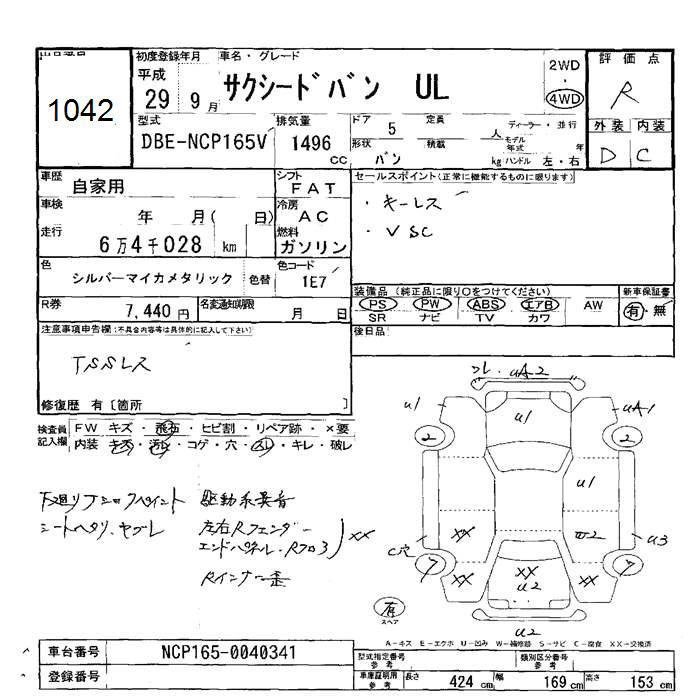 出品番号
1042
初度登録年月
平成
29 9月
車名・グレード
サクシードバン UL
2WD
・
4WD
評価点
R
外装 内装
D C
型式
DBE-NCP165V
排気量
1496
CC
ドア 5 定員 人
形状 バン 積載 kg
ディーラー・並行
モデル年式 年
ハンドル 左・右
車歴
自家用
シフト
FAT
セールスポイント(正常に機能するものに限ります)
・キーレス
・VSC
車検
年 月( 日)
冷房
AC
走行
6万4千028 km
燃料
ガソリン
色
シルバーマイカメタリック
色替
色コード
1E7
装備品(純正品に限り○をつけてください)
PS PW ABS エアB AW
SR ナビ TV カワ
新車保証書
有・無
R券
7,440円
名変通知期限
月 日
後日品
注意事項申告欄(不具合内容等は具体的に記入して下さい)
TSSレス
修復歴 有〔箇所 〕
検査員記入欄
FW キズ・飛石・ヒビ割・リペア跡・×要
内装 キズ・汚れ・コゲ・穴・スレ・キレ・破レ
下廻り
シートヘタリ、ヤブレ
駆動系異音
左右Rフェンダー
エンドパネル、Rフロア
XX
Rインナー歪
コレ・UA2
U1
U1
UA1
2
2
U1
XX
U2
C穴
U3
7
7
XX
XX
U2
XX
有
スペア
U2
A-キズ E-エクボ U-凹み W-補修跡 S-サビ C-腐食 XX-交換済
車台番号
NCP165-0040341
登録番号
型式指定番号
参考
類別区分番号
参考
車庫証明用
参考
長さ 424 cm 幅 169 cm 高さ 153 cm